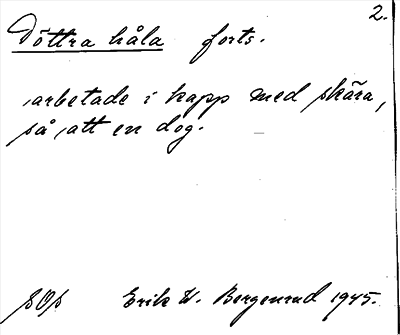 2.
Döttra håla forts.
arbetade i kapp med skära,
så att en dog.
SOs Erik W. Bergenrud 1945.